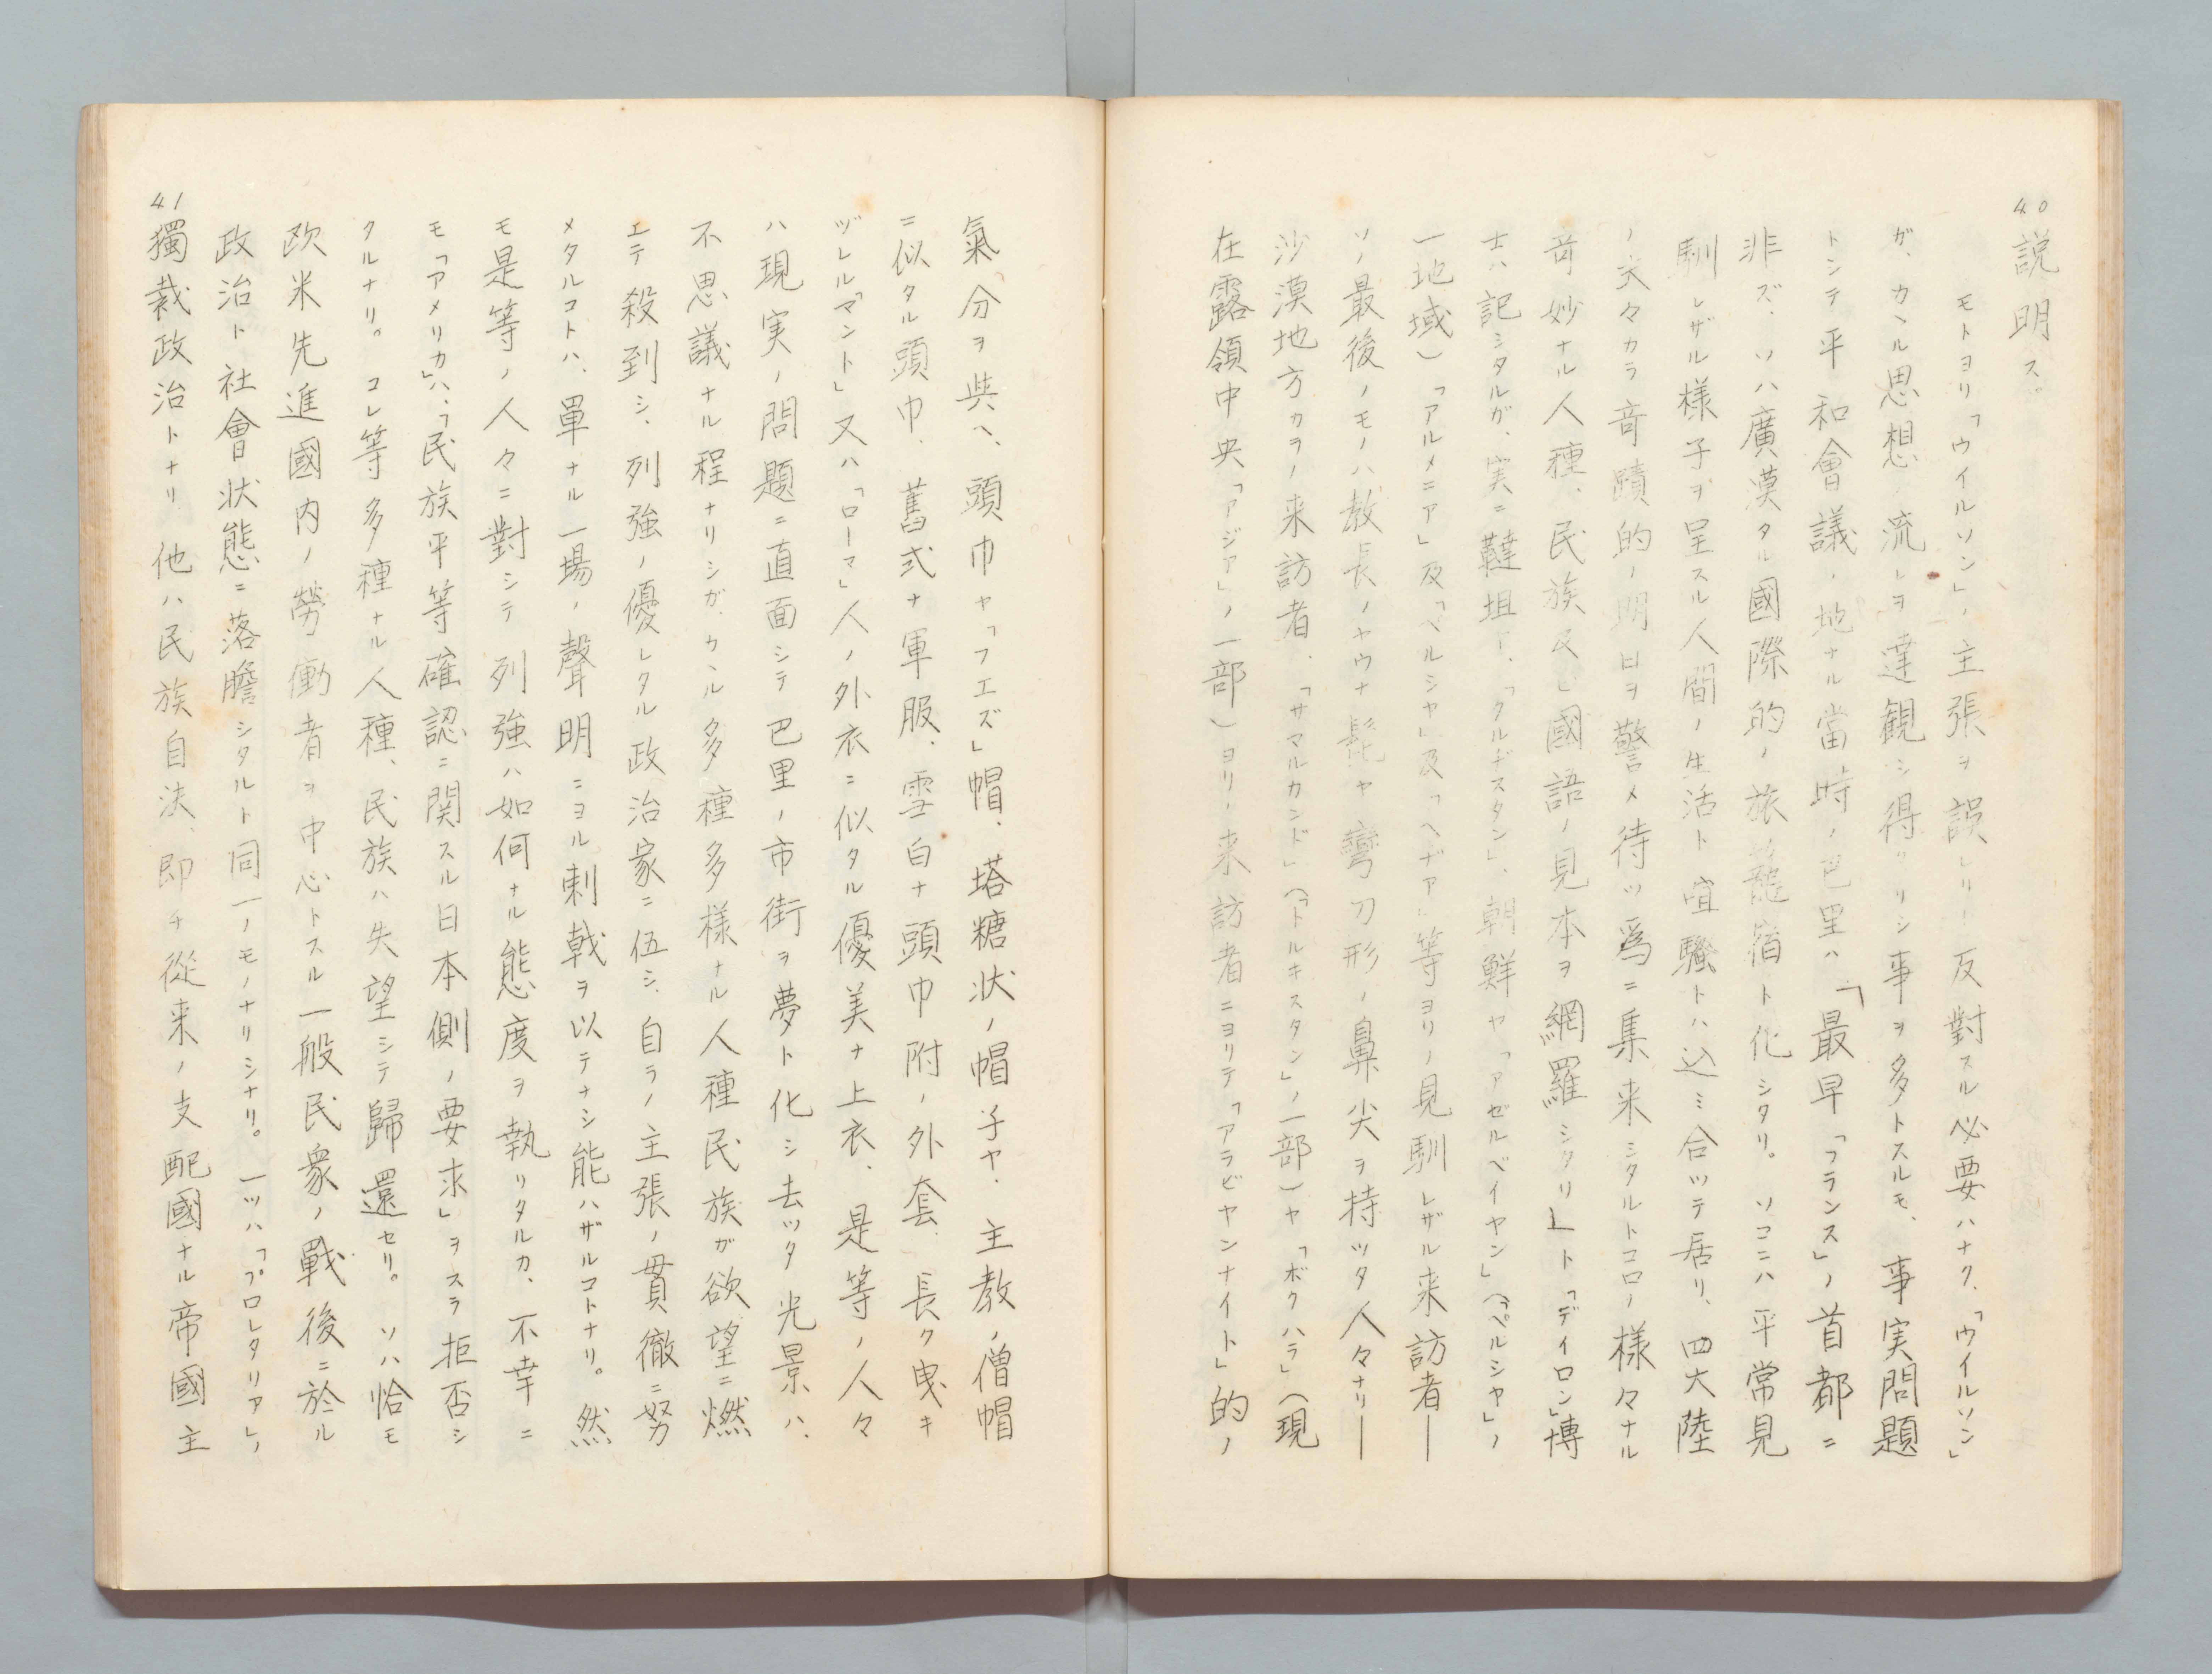 40
説明ス。
モトヨリ「ウイルソン」ノ主張ヲ誤レリト反對スル必要ハナク、「ウイルソン」
ガ、カヽル思想ノ流レヲ達観シ得タリシ事ヲ多トスルモ、事実問題
トシテ平和會議ノ地ナル當時ノ巴里ハ「最早「フランス」ノ首都ニ
非ズ、ソハ廣漠タル國際的ノ旅籠宿ト化シタリ。ソコニハ平常見
馴レザル様子ヲ呈スル人間ノ生活ト喧騒トハ込ミ合ツテ居リ、四大陸
ノ夫々カラ奇蹟的ノ明日ヲ警メ待ツ為ニ集来シタルトコロノ様々ナル
奇妙ナル人種、民族及ビ國語ノ見本ヲ網羅シタリ」ト「デイロン」博
士ハ記シタルガ、実ニ韃坦ト、「クルヂスタン」、朝鮮ヤ「アゼルベイヤン」(「ペルシヤ」ノ
一地域)「アルメニア」及「ペルシヤ」及「ヘヂア」等ヨリノ見馴レザル来訪者―
ソノ最後ノモノハ教長ノヤウナ髭ヤ彎刀形ノ鼻尖ヲ持ツタ人々ナリ―
沙漠地方カラノ来訪者、「サマルカンド」(「トルキスタン」ノ一部)ヤ「ボクハラ」(現
在露領中央「アジア」ノ一部)ヨリノ来訪者ニヨリテ「アラビヤンナイト」的ノ
氣分ヲ與ヘ、頭巾ヤ「フエズ」帽、塔糖状ノ帽子ヤ、主教ノ僧帽
ニ似タル頭巾、舊式ナ軍服、雪白ナ頭巾附ノ外套、長ク曳キ
ヅレル「マント」又ハ「ローマ」人ノ外衣ニ似タル優美ナ上衣、是等ノ人々
ハ現実ノ問題ニ直面シテ巴里ノ市街ヲ夢ト化シ去ツタ光景ハ、
不思議ナル程ナリシガ、カヽル多種多様ナル人種民族ガ欲望ニ燃
エテ殺到シ、列強ノ優レタル政治家ニ伍シ、自ラノ主張ノ貫徹ニ努
メタルコトハ、單ナル一場ノ聲明ニヨル刺戟ヲ以テナシ能ハザルコトナリ。然
モ是等ノ人々ニ對シテ列強ハ如何ナル態度ヲ執リタルカ、不幸ニ
モ「アメリカ」ハ、「民族平等確認ニ関スル日本側ノ要求」ヲスラ拒否シ
タルナリ。コレ等多種ナル人種、民族ハ失望シテ歸還セリ。ソハ恰モ
欧米先進國内ノ勞働者ヲ中心トスル一般民衆ノ戰後ニ於ル
政治ト社會状態ニ落膽シタルト同一ノモノナリシナリ。一ツハ「プロレタリア」ノ
41
獨裁政治トナリ、他ハ民族自決、即チ從来ノ支配國ナル帝國主